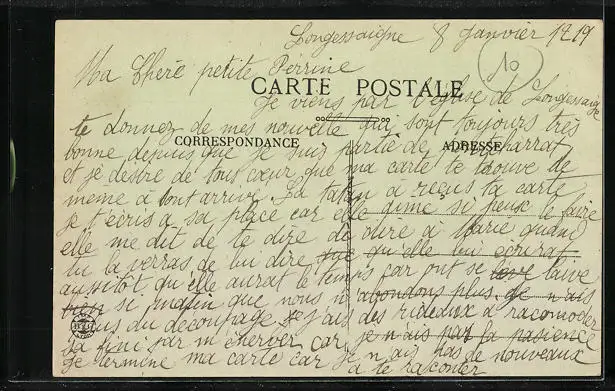 Longessaigne 8 Janvier 1919
10
Ma Chère petite Perrine
CARTE POSTALE
Je viens par l'église de Longessaigne
te donnez de mes nouvelle qui sont toujours très
CORRESPONDANCE
ADRESSE
bonne depuis que je suis partie de
et je désire de tout cœur que ma carte te trouve de
même à ton arrivé. La tatan à reçus ta carte
je t'écris a sa place car elle aime si peux le faire
elle me dit de te dire de dire à Marie quand
tu la verras de lui dire que qu'elle lui écrirat
aussitôt qu'elle aurat le temps car ont se lave
si matin que nous n'abondons plus. Je n'ais
plus du découpage j'ais des rideaux a racomoder
sa fini par m'énerver car je n'ais pas la pasience
je termine ma carte car je n'ais pas de nouveaux
à te raconter